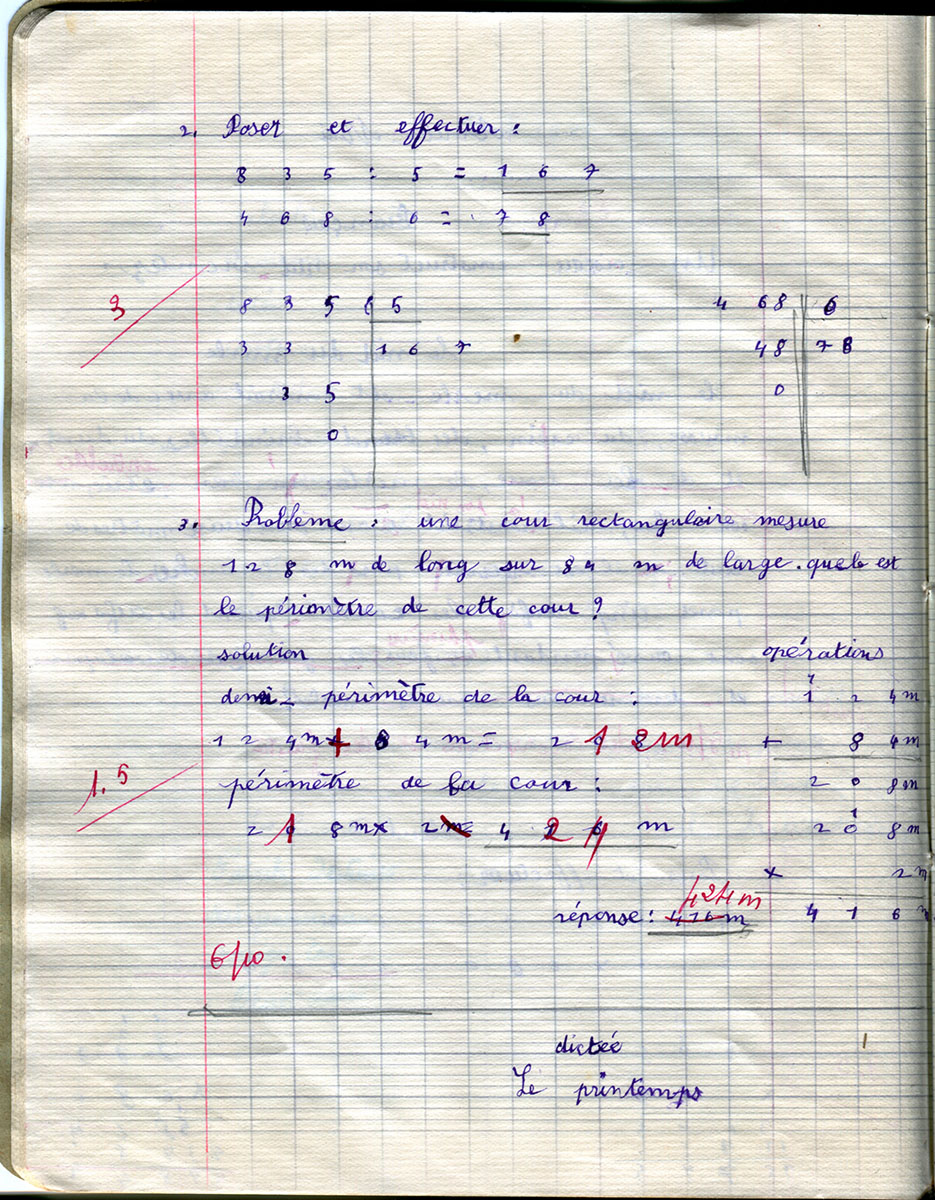 2. Poser et effectuer :
8 3 5 : 5 = 1 6 7
4 6 8 : 6 = 7 8
3
8 3 5 5 4 68 6
3 3 1 6 7 48 78
3 5 0
0
3. Problème : une cour rectangulaire mesure
1 2 8 m de long sur 84 m de large. quele est
le périomètre de cette cour ?
solution opérations
demi_ périmètre de la cour : 1 2 4m
1 2 4m + 8 4 m = 2 1 2m + 8 4m
1.5
périmètre de la cour : 2 0 8m
2 1 8m x 2 = 4 2 4 m 2 0 8m
x 2m
424m
réponse : 416m 4 1 6
6/10.
dictée
Le printemps